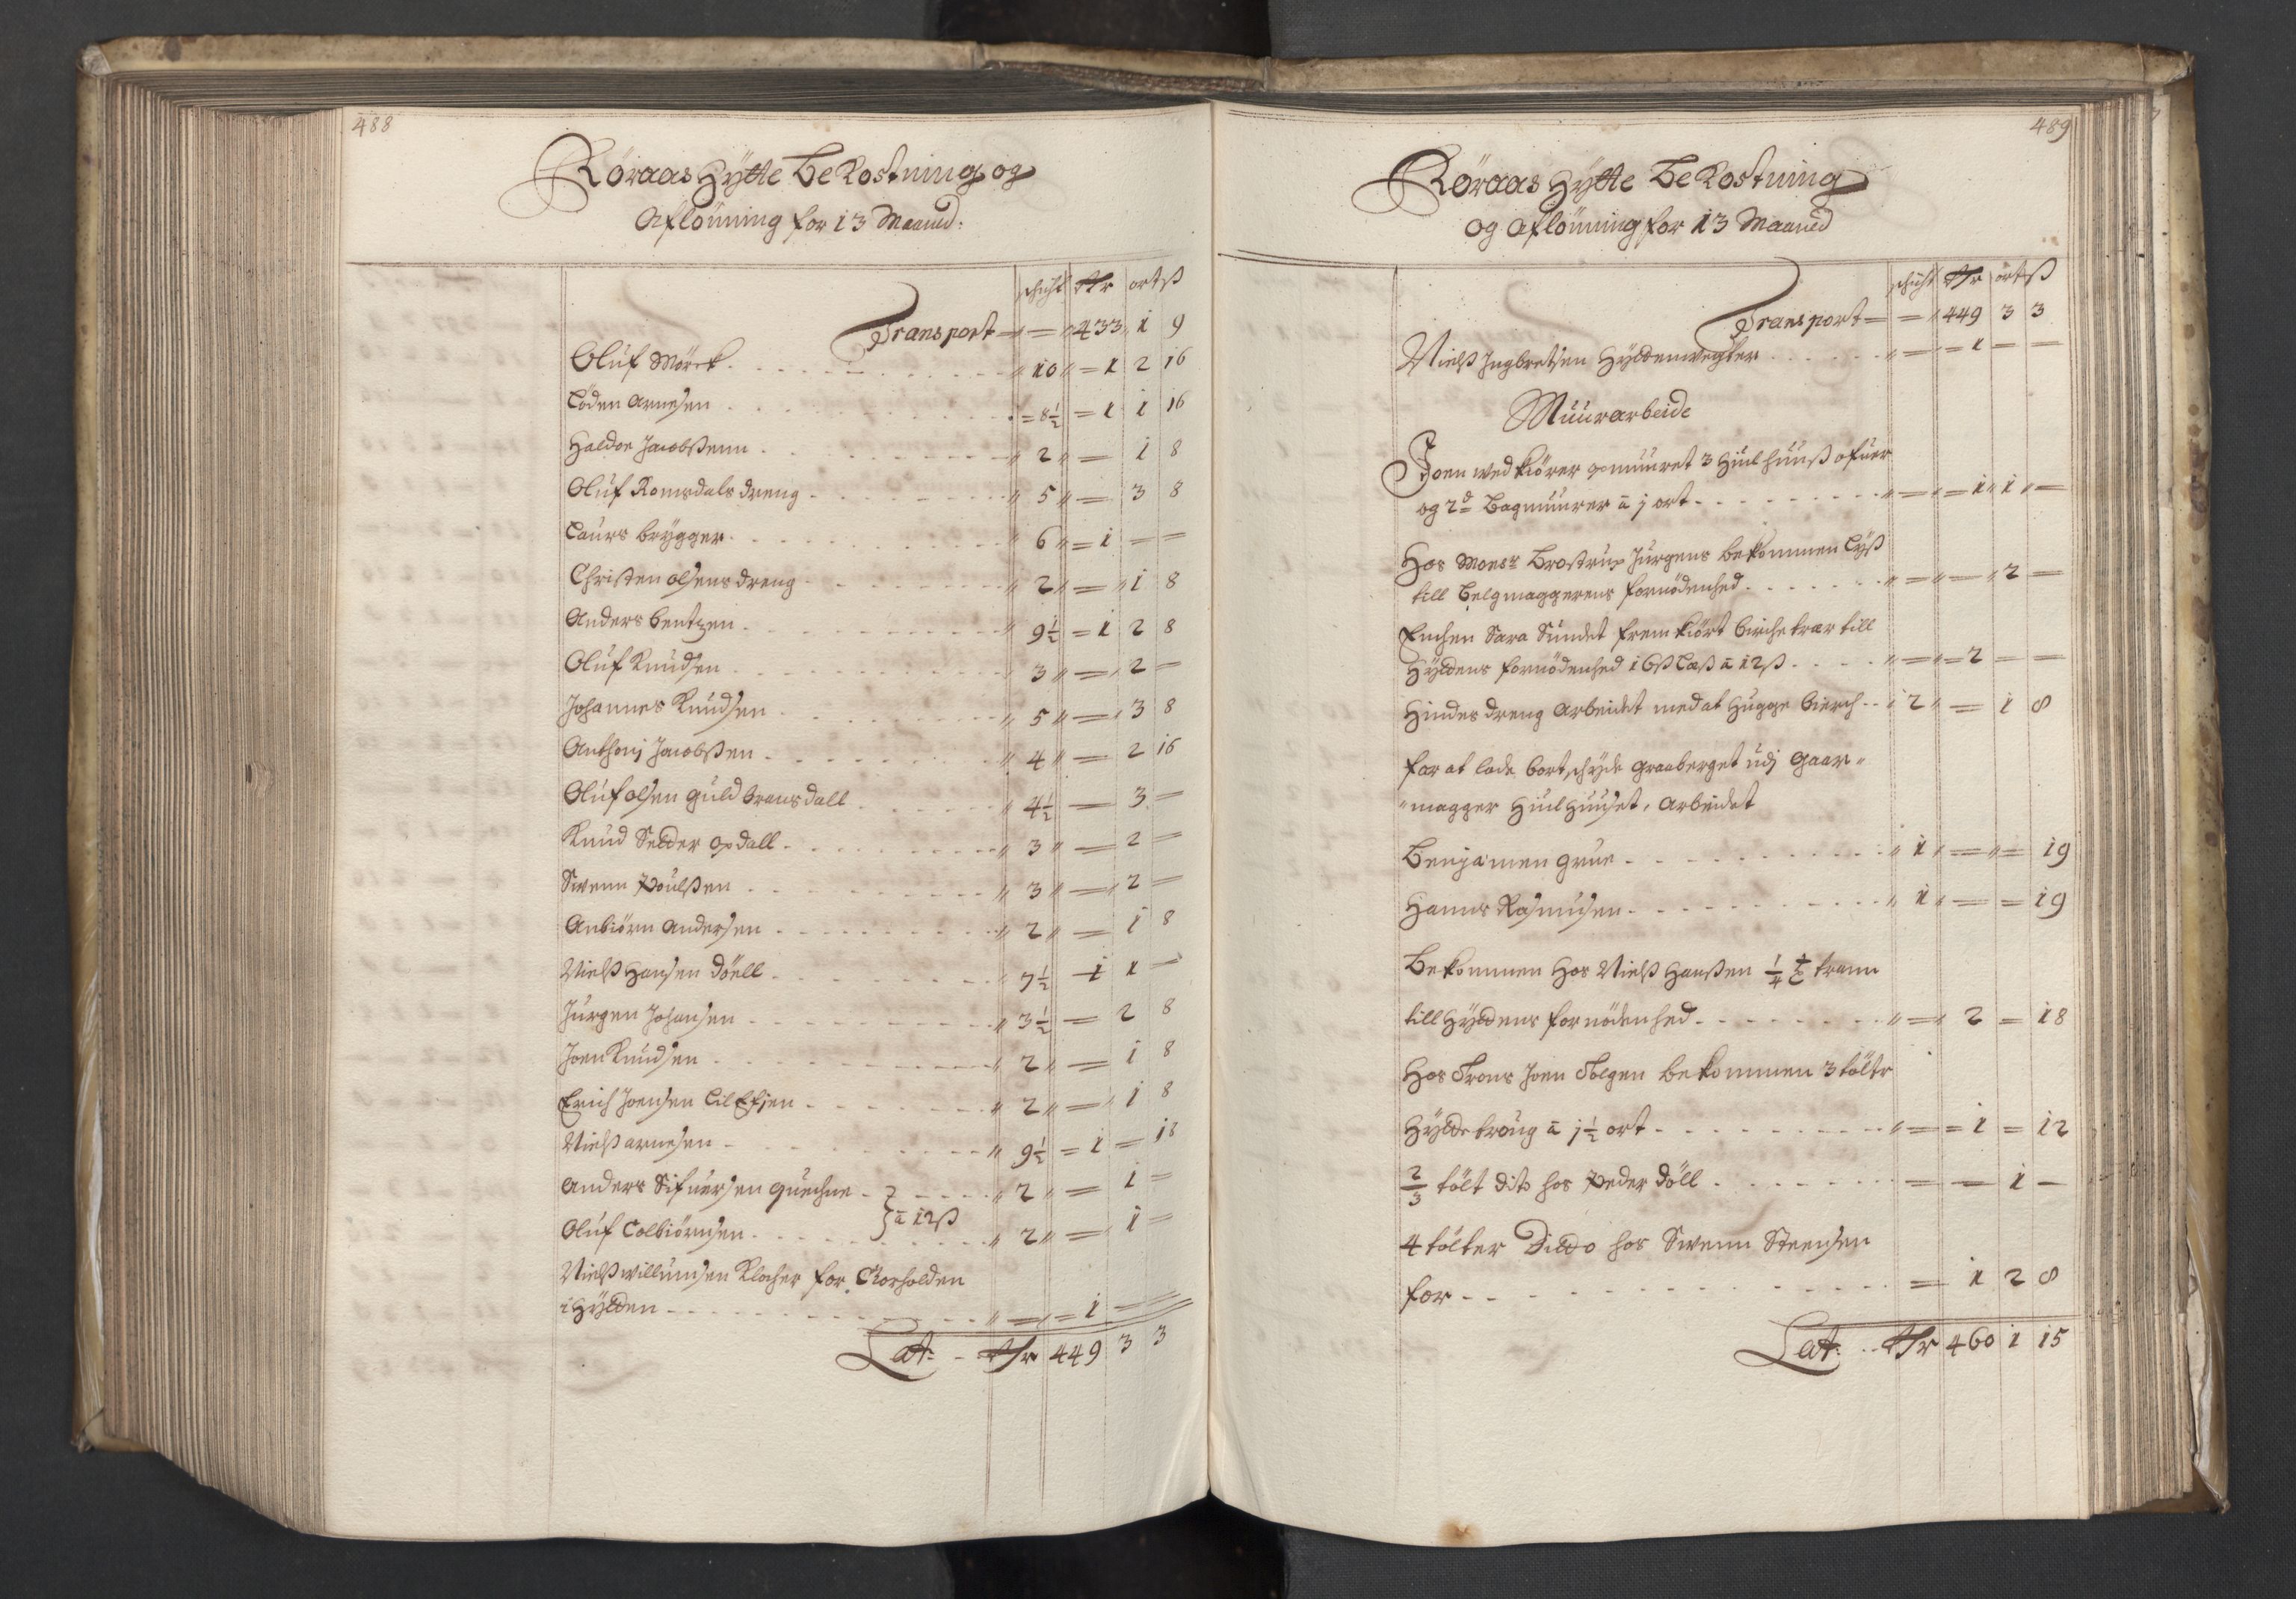 488
Röraas Hÿtte Bekostning og
Aflönning for 13 Maaned:
schicht Rdr ort ß
Transport 433 1 9
Oluf Mörck 10 1 2 16
Löden Arnesen 8½ 1 1 16
Haldor Jacobßenn 2 1 8
Oluf Romsdals dreng 5 3 8
Laurs brÿgger 6 1
Christen olsens dreng 2 1 8
Anders bentzen 9½ 1 2 8
Oluf Knudsen 3 2
Johannes Knudsen 5 3 8
Anthonj Jacobßen 4 2 16
Oluf olsen Guldbransdall 4½ 3
Knud Selder Opdall 3 2
Swenn Poulßen 3 2
Anbiörn Andersen 2 1 8
Nielß Hansen döell 7½ 1 1
Jurgen Johansen 3½ 2 8
Joen Knudsen 2 1 8
Erich Joensen Lilefjen 2 1 8
Nielß arnesen 9½ 1 18
Anders Sifuersen quechne 2 1
à 12ß
Oluf Colbiörnsen 2 1
Nielß willumsen Klocher for Chorholden
i Hÿtten 1
Lat: Rdr 449 3 3
489
Röraas Hÿtte Bekostning
og Aflönning for 13 Maaned
schicht Rdr ort ß
Transport 449 3 3
Nielß Ingbretsen Hÿttenwegter 1
Muurarbeide
Joen wedkiörer opmuuret 3 Hiul huuß ofuer
og 2d Bagmuurer à j ort 1 1
Hos Monsr Brostrup Jurgens bekommen Lÿß
till belgmaggerens fornödenhed 2
Enchen Sara Sundet fremkiört birchetrær till
Hÿttens fornödenhed 16ß Læß à 12ß 2
Hindes dreng Arbeidet med at Hugge bierch 2 1 8
for at lade bortschÿde graaberget udj Gaar
magger Hiulhuuset, Arbeidet
Benjamen grue 1 19
Hanns Rasmusen 1 19
Bekommen Hos Nielß Hanßen ¼ t trann
till Hÿttens fornödenhed 2 18
Hos Trons Joen Tolgen bekommen 3 tölter
Hÿttetroug à j½ ort 1 12
⅔ tölt dito hos Peder döll 1
4 tölter Ditto hos Swenn Steensen
for 1 2 8
Lat: Rdr 460 1 15